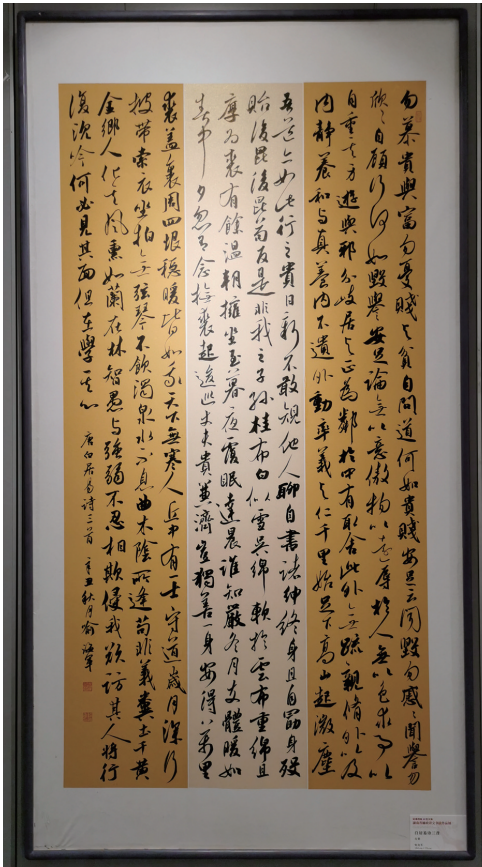 勿慕貴與富勿憂賤與貧自問道何如貴賤安足云聞毀勿戚戚聞譽勿
欣欣自顧行何如毀譽安足論無以意傲物以遠辱於人無以色求事以
自重其身遊與邪分歧居與正為鄰於中有取舍此外無疏親脩外以及
内靜養和与真養内不遺外動率義与仁千里始足下高山起微塵
吾道亦如此行之貴日新不敢規他人聊自書諸紳終身且自勖身殁
貽後昆後昆苟反是非我之子孫桂布白似雪吳綿軟於雲布重綿且
厚為裘有餘温朝擁坐至暮夜覆眠達晨誰知嚴冬月支體暖如
春中夕忽有念撫裘起逡巡丈夫貴兼濟豈獨善一身安得万里
裘蓋裹周四垠穩暖皆如我天下無寒人丘中有一士守道歲月深行
披帶索衣坐拍無弦琴不飲濁泉水不息曲木陰所逢苟非義糞土千黄
金鄉人化其風熏如蘭在林智愚与強弱不忍相欺侵我欲訪其人將行
復沉吟何必見其面但在學其心
唐白居易詩三首 辛丑秋月俞